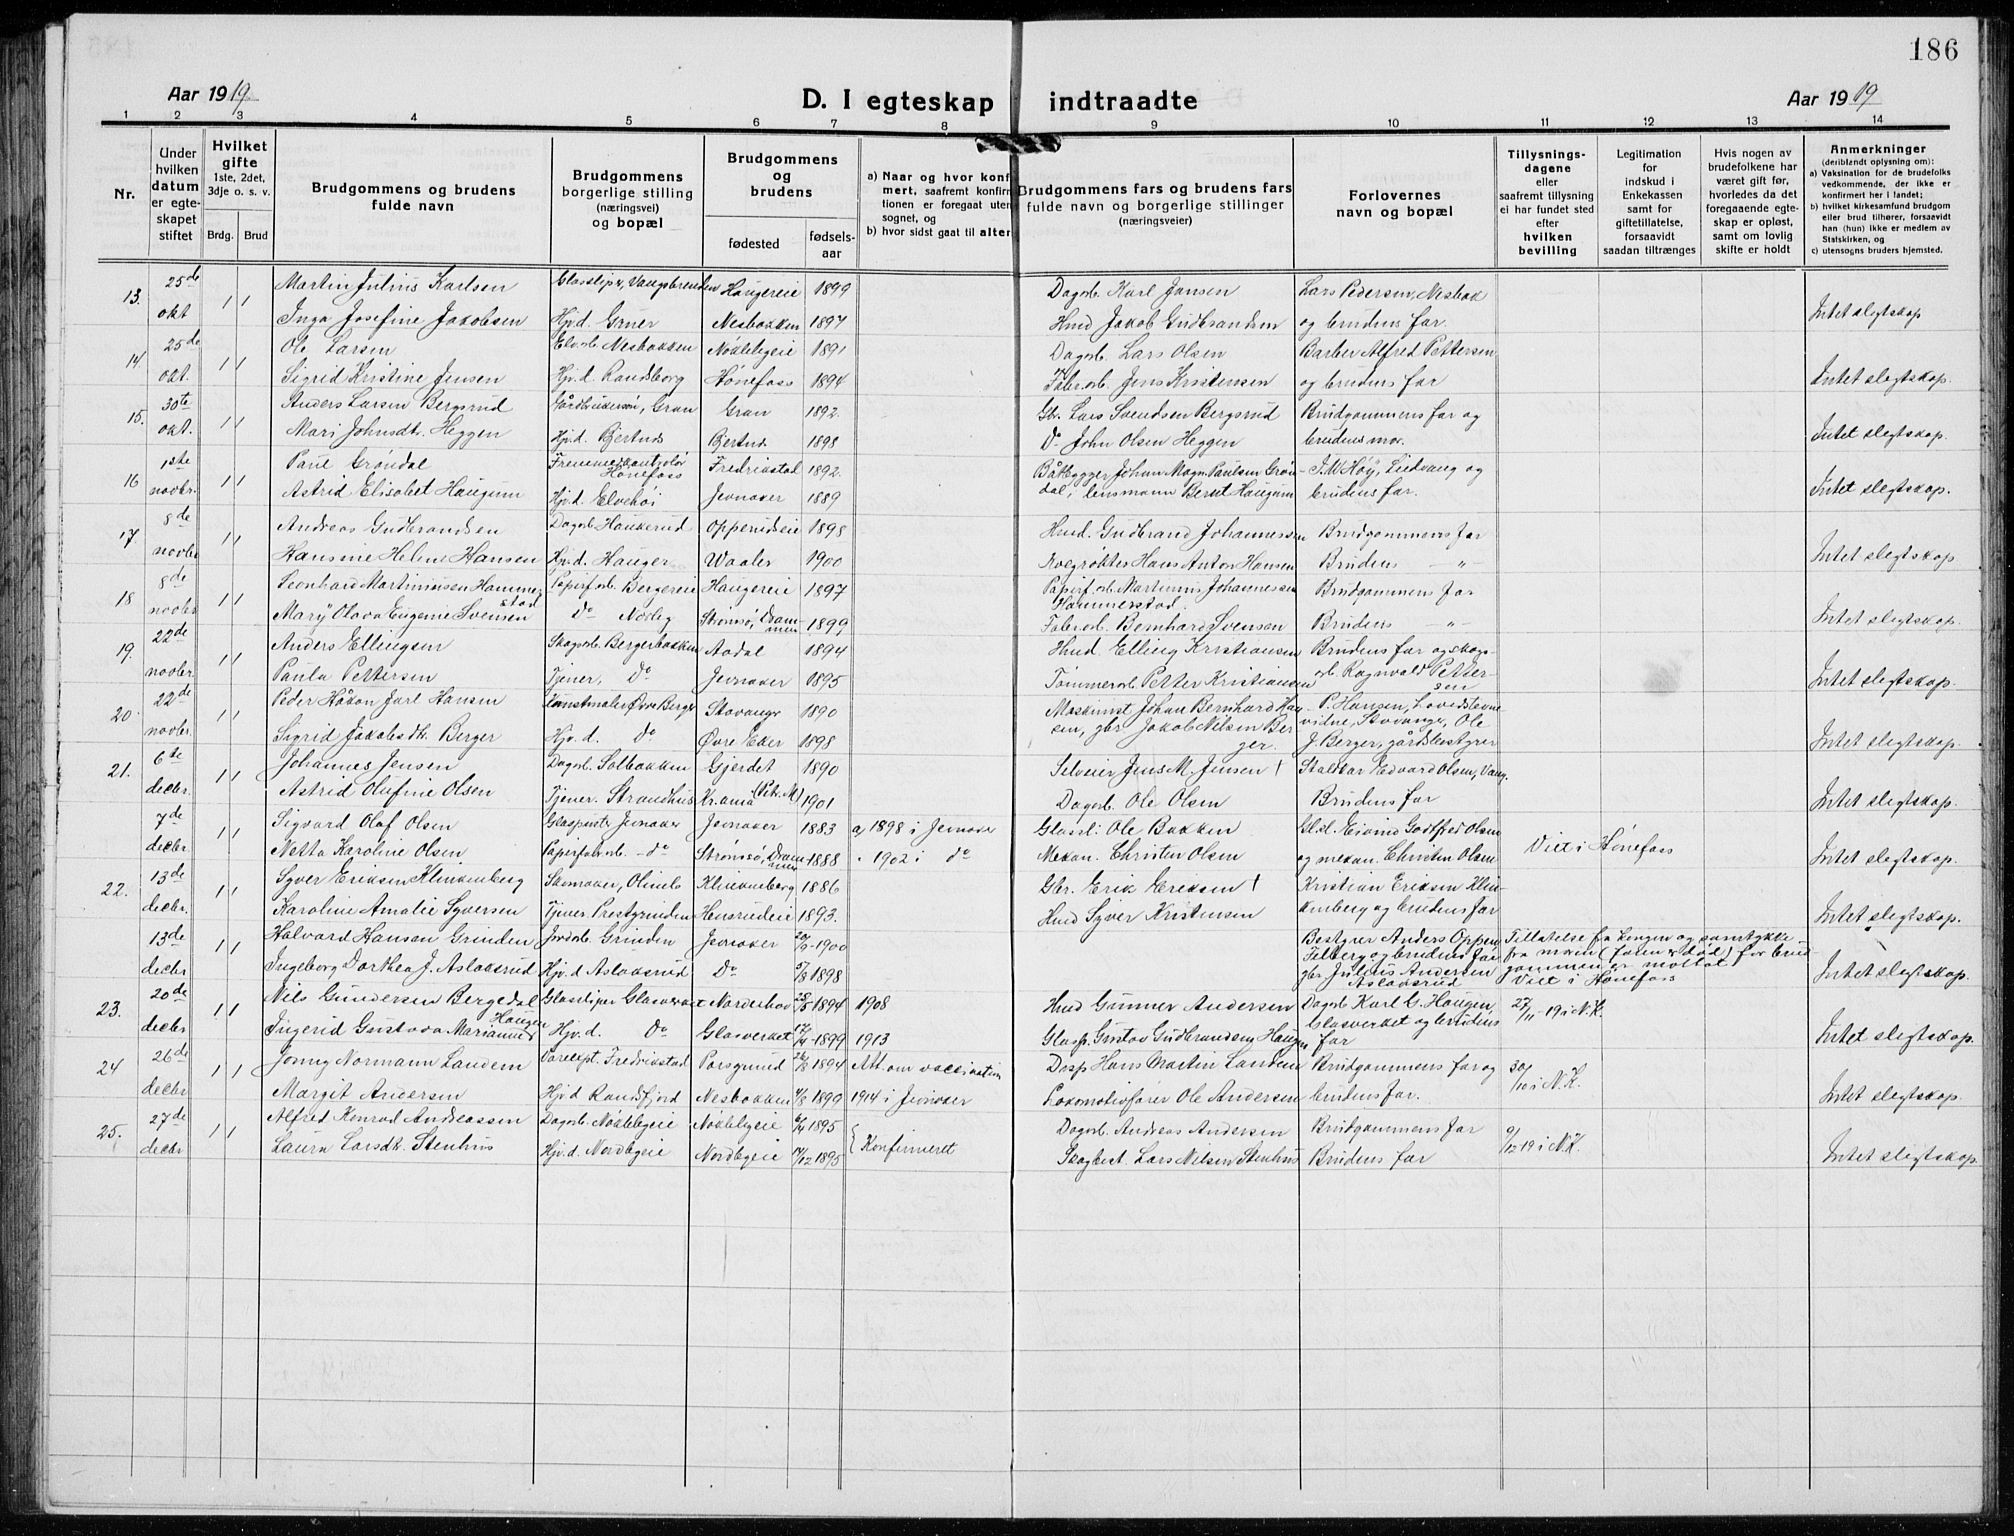 186
Aar 1919
D. I egteskap indtraadte
Aar 1919
1 2 3 4 5 6 7 8 9 10 11 12 13 14
Nr.
Under hvilken datum er egteskapet stiftet
Hvilket gifte 1ste, 2det, 3dje o. s. v.
Brdg. Brud
Brudgommens og brudens fulde navn
Brudgommens borgerlige stilling (næringsvei) og bopæl
Brudgommens og brudens
fødested
fødsels-aar
a) Naar og hvor konfirmert, saafremt konfirmationen er foregaat utensognet, og
b) hvor sidst gaat til alters
Brudgommens fars og brudens fars fulde navn og borgerlige stillinger (næringsveier)
Forlovernes navn og bopæl
Tillysnings-dagene eller saafremt tillysning ei har fundet sted efter hvilken bevilling
Legitimation for indskud i Enkekassen samt for giftetillatelse, forsaavidt saadan tiltrænges
Hvis nogen av brudefolkene har været gift før, hvorledes da det foregaaende egteskap er opløst, samt om lovlig skifte er holdt
Anmerkninger
(deriblandt oplysning om):
a) Vaksination for de brudefolks vedkommende, der ikke er konfirmert her i landet;
b) hvilket kirkesamfund brudgom eller brud tilhører, forsaavidt han (hun) ikke er medlem av Statskirken, og
c) utensogns bruders hjemsted.
13. 25de 1 1 Martin Julius Karlsen Glassliper, Vangsbrenden Haugereie 1899 Dagarb. Karl Jansen Lars Pedersen, Nesbak
okt Inga Josefine Jakobsen Hjv.d. Gruer Nesbakken 1897 Hmd Jakob Gudbrandsen og brudens far. Intet slegtskap
14. 25de 1 1 Ole Larsen Elv.arb. Nesbakken Nøklebyeie 1891 Dagarb. Lars Olsen Barber Alfred Pettersen
okt. Sigrid Kristine Jensen Hjv.d. Randsborg Hønefoss 1894 Fabr.arb. Jens Kristensen og brudens far Intet slegtskap.
15. 30te 1 1 Anders Larsen Bergsrud Gårdbrukersøn, Gran Gran 1892. Gbr. Lars Svendsen Bergsrud Brudgommens far og
okt. Mari Johnsdtr. Heggen Hjv.d. Bjertnes Bjertnes 1898 Do John Olsen Heggen brudens mor. Intet slegtskap.
16 1ste 1 1 Paul Grøndal Hønefoss Fredrikstad 1892. Båtbygger Johan Magn. Paulsen Grøn- J. M. Høy, Lidvang og
novbr. Astrid Elisabet Haugum Hjv.d. Elvehøi Jevnaker 1889 dal; lensmann Bernt Haugum brudens far. Intet slegtskap.
17 8de 1 1 Andreas Gudbrandsen Dagarb. Haukerud Oppenidseie 1898 Hmd. Gudbrand Johannessen Brudgommens far
novbr Hansine Helene Hansen Hjv.d. Hauger Waaler 1900 Hans Anton Hansen Brudens — " — Intet slegtskap
18 8de 1 1 Leonhard Martiniusen Hammerstad Papirf.arb. Bergereie Haugereie 1897 Papirf.arb. Martinius Johannessen Hammerstad. Brudgommens far
novbr Mary Olava Eugenie Svensen Do Nøkleby Strømsø, Drammen 1899 Fabr.arb. Bernhard Svensen Brudens — " — Intet slegtskap.
19. 22de 1 1 Anders Ellingsen Skogsarb. Bergerbakken Aadal 1894 Hmd. Elling Kristiansen Brudens far og skogs-
novbr. Paula Pettersen Tjener, Do Jevnaker 1895 Tømmerarb. Petter Kristiansen arb. Ragnvald Pettersen Intet slegtskap.
20. 22de 1 1 Peder Håkon Jarl Hansen Kunstmaler Øvre Berger Stavanger 1890 Maskinist Johan Bernhard Han- P. Hansen, Lovedsbrevvidne, Stavanger, Ole
novbr. Sigrid Jakobsdtr. Berger Hjv.d. Do Øvre Eker 1898 sen, gbr Jakob Nilsen Berger. J. Berger, gårdsbestyrer Intet slegtskap.
21. 6te 1 1 Johannes Jensen Dagarb. Solbakken Gjerdet 1890 Selveier Jens M. Jensen † Stalkar Edvard Olsen, Vang.
decbr. Astrid Olufine Olsen Tjener. Strandhus Kr.ania (Petr. M) 1901 Dagarb. Ole Olsen Brudens far Intet slegtskap.
7de 1 1 Sigvard Olaf Olsen Glaspuster Jevnaker Jevnaker 1883 a, 1898 i Jevnaker Glassli Ole Bakken Gl.sl. Eivind Godtfred Olsen Viet i Hønefoss
decbr. Netta Karoline Olsen Papirfabr.arb. — do Strømsø, Drammen 1888 " 1902 i do Mekan. Christen Olsen og mekan. Christen Olsen Intet slegtskap.
22. 13de 1 1 Syver Eriksen Klinkenberg Skomaker, Olimb Klinkenberg 1886 Gbr. Erik Eriksen † Kristian Eriksen Klin-
decbr. Karoline Amalie Syversen Tjener Prestgrinden Hensrudeie 1893. Hmd Syver Kristensen kenberg og brudens far Intet slegtskap.
13de 1 1 Halvard Hansen Grinden Jordarb. Grinden Jevnaker 20/9-1900 Bestyrer Anders Oppen Tilberg og brudens far Tillatelse fra kongen og samtykke fra moren (faren er død) for brudgommen er mottat.
decbr Ingeborg Dorthea J. Aslaksrud Hjv.d Aslaksrud Do 5/8 1898 gbr Julius Andersen Aslaksrud Viet i Hønefoss Intet slegtskap.
23. 20de 1 1 Nils Gundersen Bergedal Glassliper Glasverket Norderhov 28/5 1894 1908 Hmd Gunner Andersen Dagarb Karl G. Haugen, 27/11-19 i N.K.
decbr. Ingerid Gustava Marianne Haugen Hjv.d. Do Glasverket 17/4 1899 1913 Glasp. Gustav Gudbrandsen Haugen Glasverket og brudens far Intet slegtskap.
24 26de 1 1 Jonny Normann Landem Varecept. Fredrikstad Porsgrund 26/8 1894 Att. om vaccination Desp Hans Martin Landem Brudgommens far og 30/10 i N.K.
decbr. Margit Andersen Hjv.d Randsfjord Nesbakken 4/8 1899 1914 i Jevnaker Lokomotivfører Ole Andersen brudens far. Intet slegtskap.
25. 27de 1 1 Alfred Konrad Andreassen Dagarb. Nøklebyeie Nøklebyeie 6/4 1895 { Konfirmeret Dagarb. Andreas Andersen Brudgommens far 9/12 19 i N.K.
decbr Laura Larsdtr. Stenhus Hjv.d. Nordbyeie Nordbyeie 14/12 1895 Skogbest. Lars Nilsen Stenhus Brudens far Intet slegtskap.